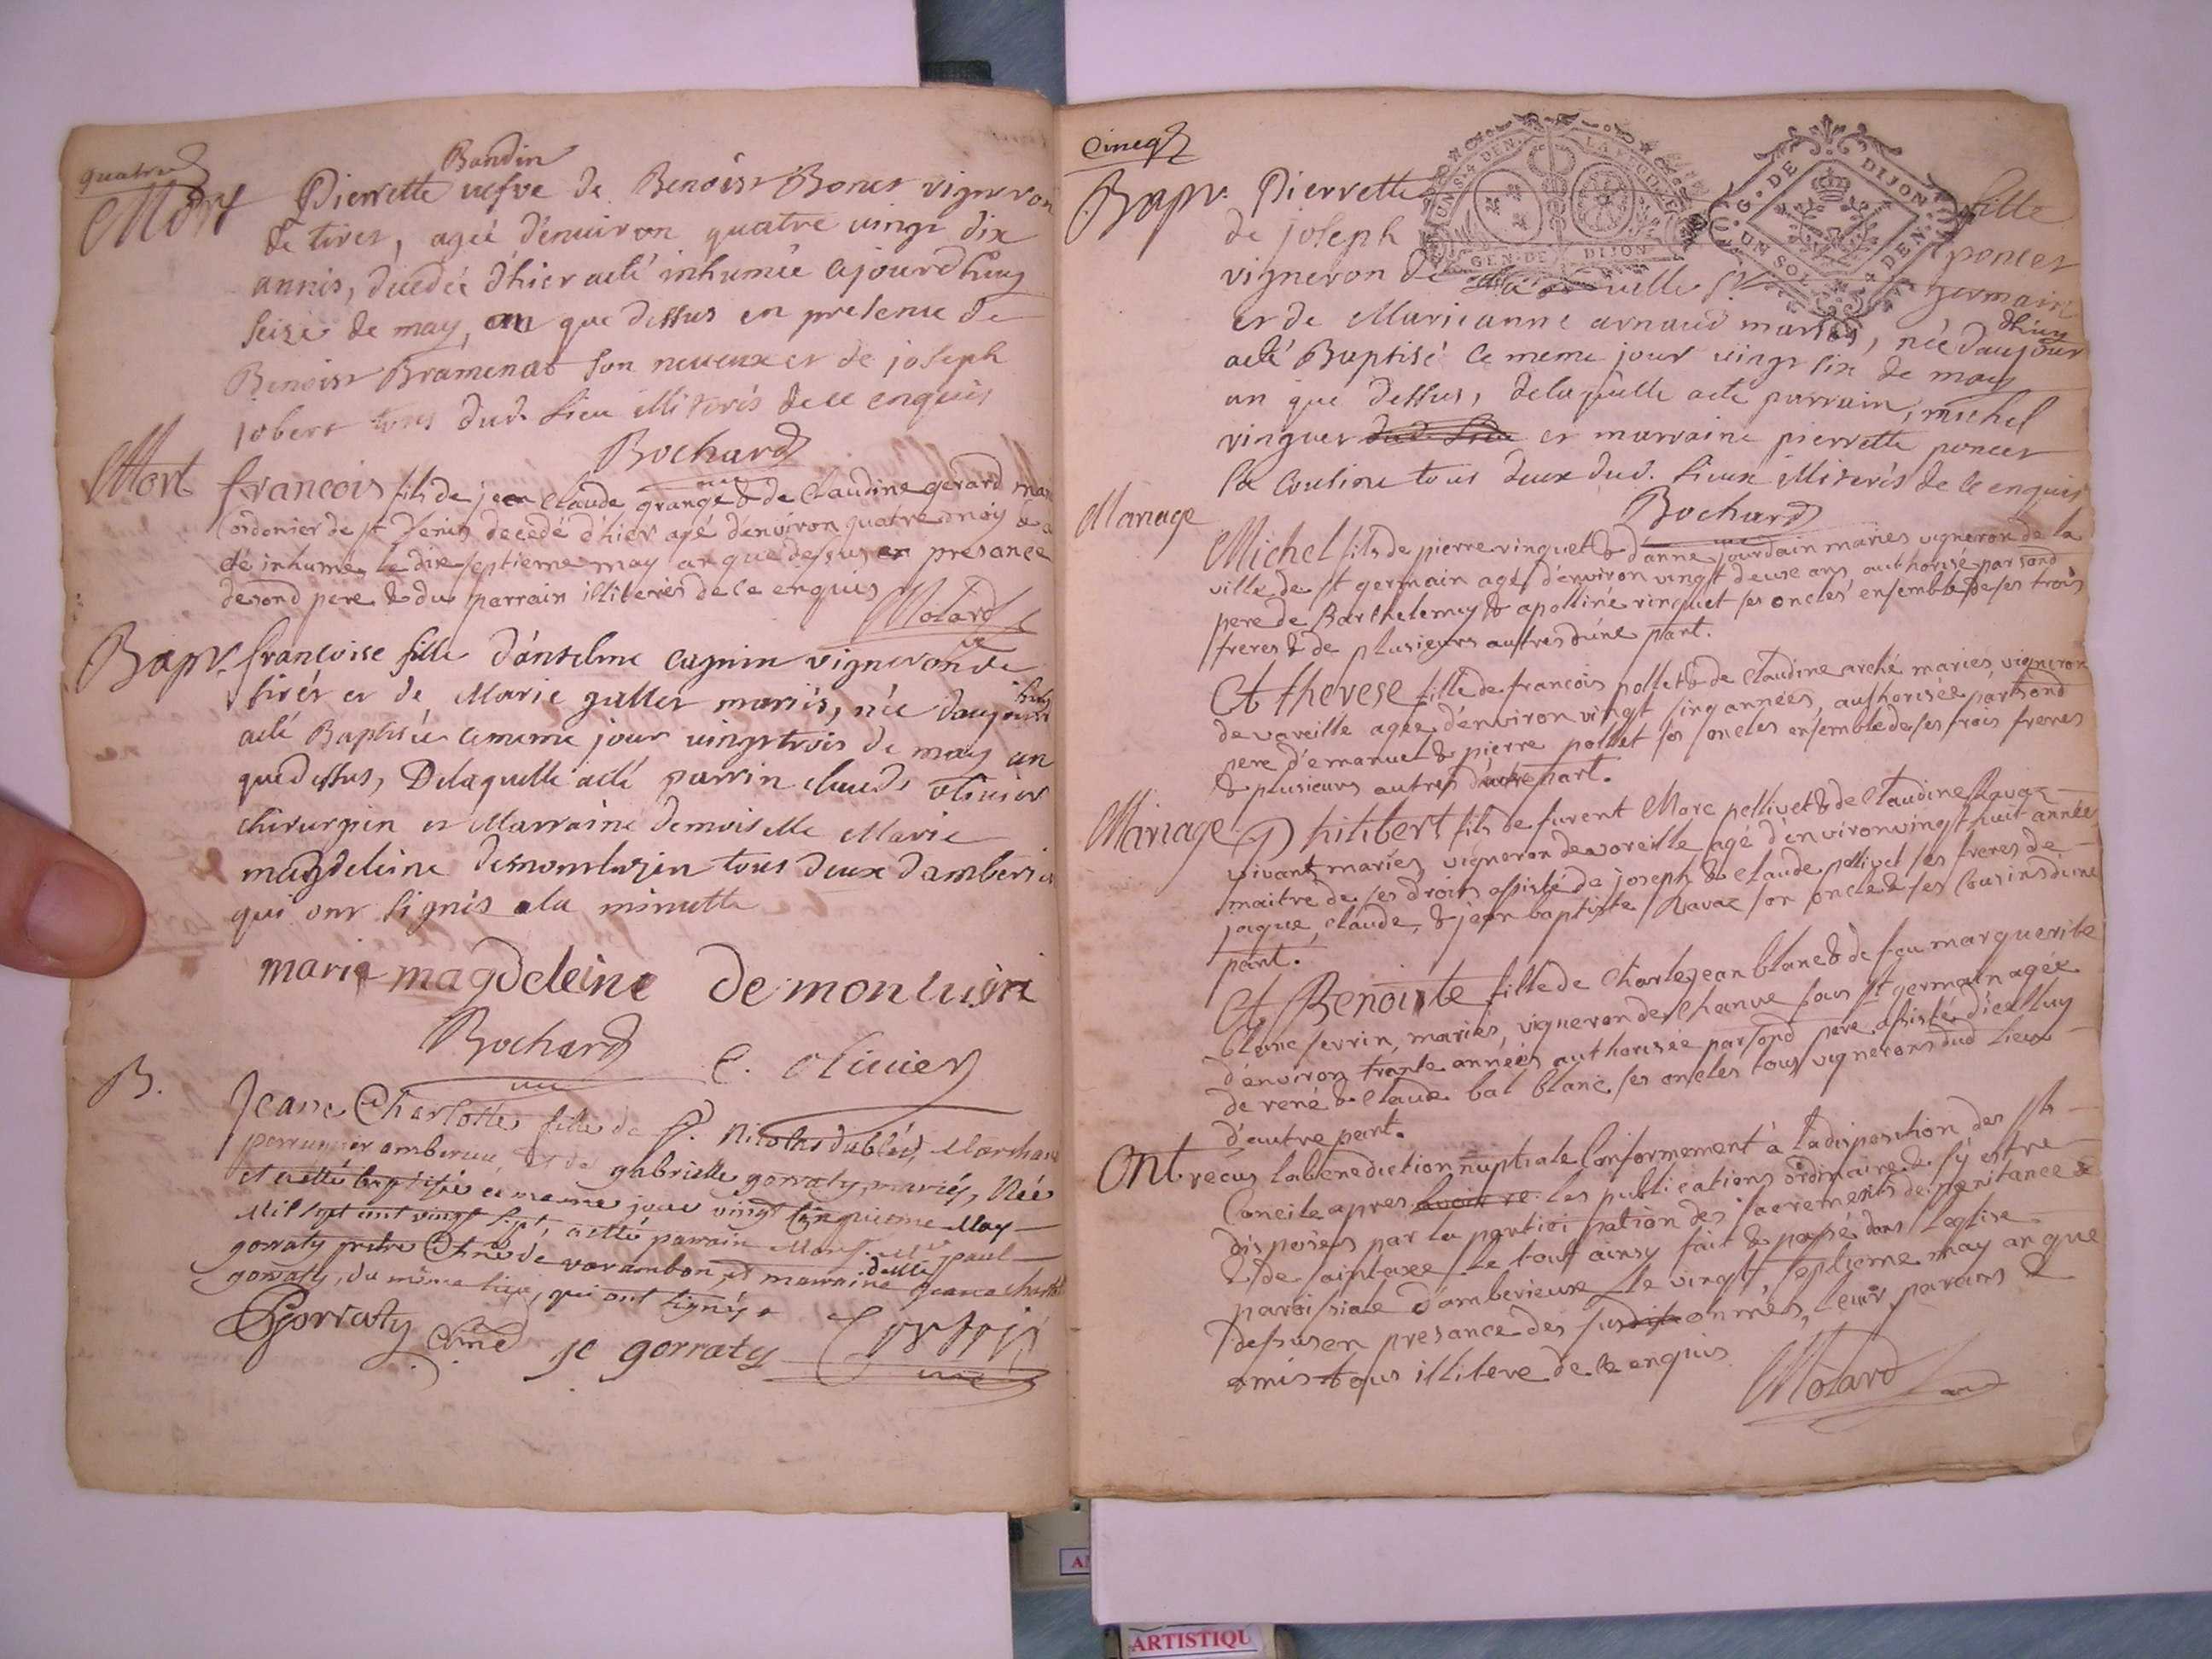 quatre
Bondin
Mort Pierrette vefve de Benoist Bonet vigneron
de tiret, agée d'environ quatre vingt dix
annés, décédée d'hier a eté inhumée cejourdhuy
seize de may, an que dessus en presence de
Benoist Bramenat son neveux et de joseph
jobert tous dud. lieu illiterés de ce enquis
Bochard
Mort francois fils de jean claude grange & de claudine gerard mar
Cordonier de st denis decedé d'hier agé denviron quatre moy & a
eté inhumé le dix septieme may an que dessus en presance
de sond pere & du parrain illiterés de ce enquis
Molard
vic
Bapt. francoise fille d'anselme cagnin vigneron de
tirét et de Marie gullet mariés, née daujour
dhuy
a eté Baptisée ce meme jour vingt trois de may an
que dessus, De laquelle a eté parrin claude olivier
chirurgien et Marraine demoiselle Marie
magdeleine demonluzin tous deux d'amberieu
qui ont signés a la minutte
marie magdeleine de monluisin
Bochard C. olivier
B. Jeane Charlotte fille de Sr. Nicolas dublés, Marchand
perruquier amberieu, et de gabrielle gorraty, mariés, Née
et a etté baptisée ce meme jour vingt cinquieme May
Mil sept cent vingt sept a etté parrain Mons. Mr paul
gorraty prêtre Chne de varambon et marraine delle jeane charlotte
gorraty, du même lieu, qui ont signés
PGorraty Chne jc gorraty
cinq
Bapt. Pierrette fille
de joseph poncet
vigneron de la ville St germain
et de Marie anne arnaud mariés, née d'aujour
dhuy
a eté Baptisé ce meme jour vingt six de may
an que dessus, de laquelle a eté parrain, michel
vinguet dud. lieu et marraine pierrette poncet
sa cousine tous deux dud. lieux illiterés de ce enquis
Bochard
UN S. 4 DEN. LA FEUILLE
GEN. DE DIJON
G. DE DIJON
UN SOL 4 DEN.
Mariage Michel fils de pierre vinguet & d'anne jourdain mariés vigneron de la
ville de st germain agé d'environ vingt deux ans authorisé par sond
pere de Barthelemy & apolliné vinguet ses oncles ensemble de ses trois
freres & de plusieurs autres d'une part.
Et therese fille de francois pollet & de claudine arché mariés, vigneron
de vareille agée d'environ vingt cinq années, authorisée par sond
pere d'emanuel & pierre pollet ses oncles ensemble de ses trois freres
& plusieurs autres d'autre part.
Mariage Philibert fils de furent Marc pellivet & de claudine Ravaz
vivant mariés, vigneron de vareille agé d'environ vingt huit années
maitre de ses droits assisté de joseph & claude pellivet ses freres de
jaque, claude, & jean baptiste Ravaz son oncle & ses Cousins d'une
part.
Et Benoiste fille de Charle jean blanc & de feu marguerite
blanc sevrin, mariés, vigneron des Chanve sous st germain agée
d'environ trante années authorisée par sond pere assisté d'icelluy
de rené & claude bal blanc ses oncles tous vignerons dud lieux
d'autre part.
Ont recus la benediction nuptiale Conformement à la disposition des sts
Concile apres avoir re les publications ordinaire & s'y estre
disposés par la participation des sacrements de penitance &
& de saint exe le tout ainsy fait & passé dans l'eglise
paroissiale d'amberieux le vingt septieme may an que
dessus en presance des susditonmés, leur parans &
amis tous illitere de ce enquis
Molard
ARTISTIQU